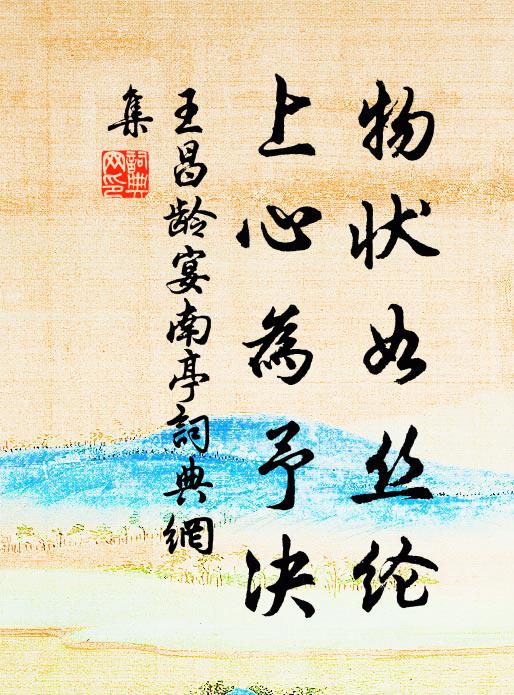 物状如丝纶
上心為予决
王昌龄宴南亭詞典網
集
詞典网印